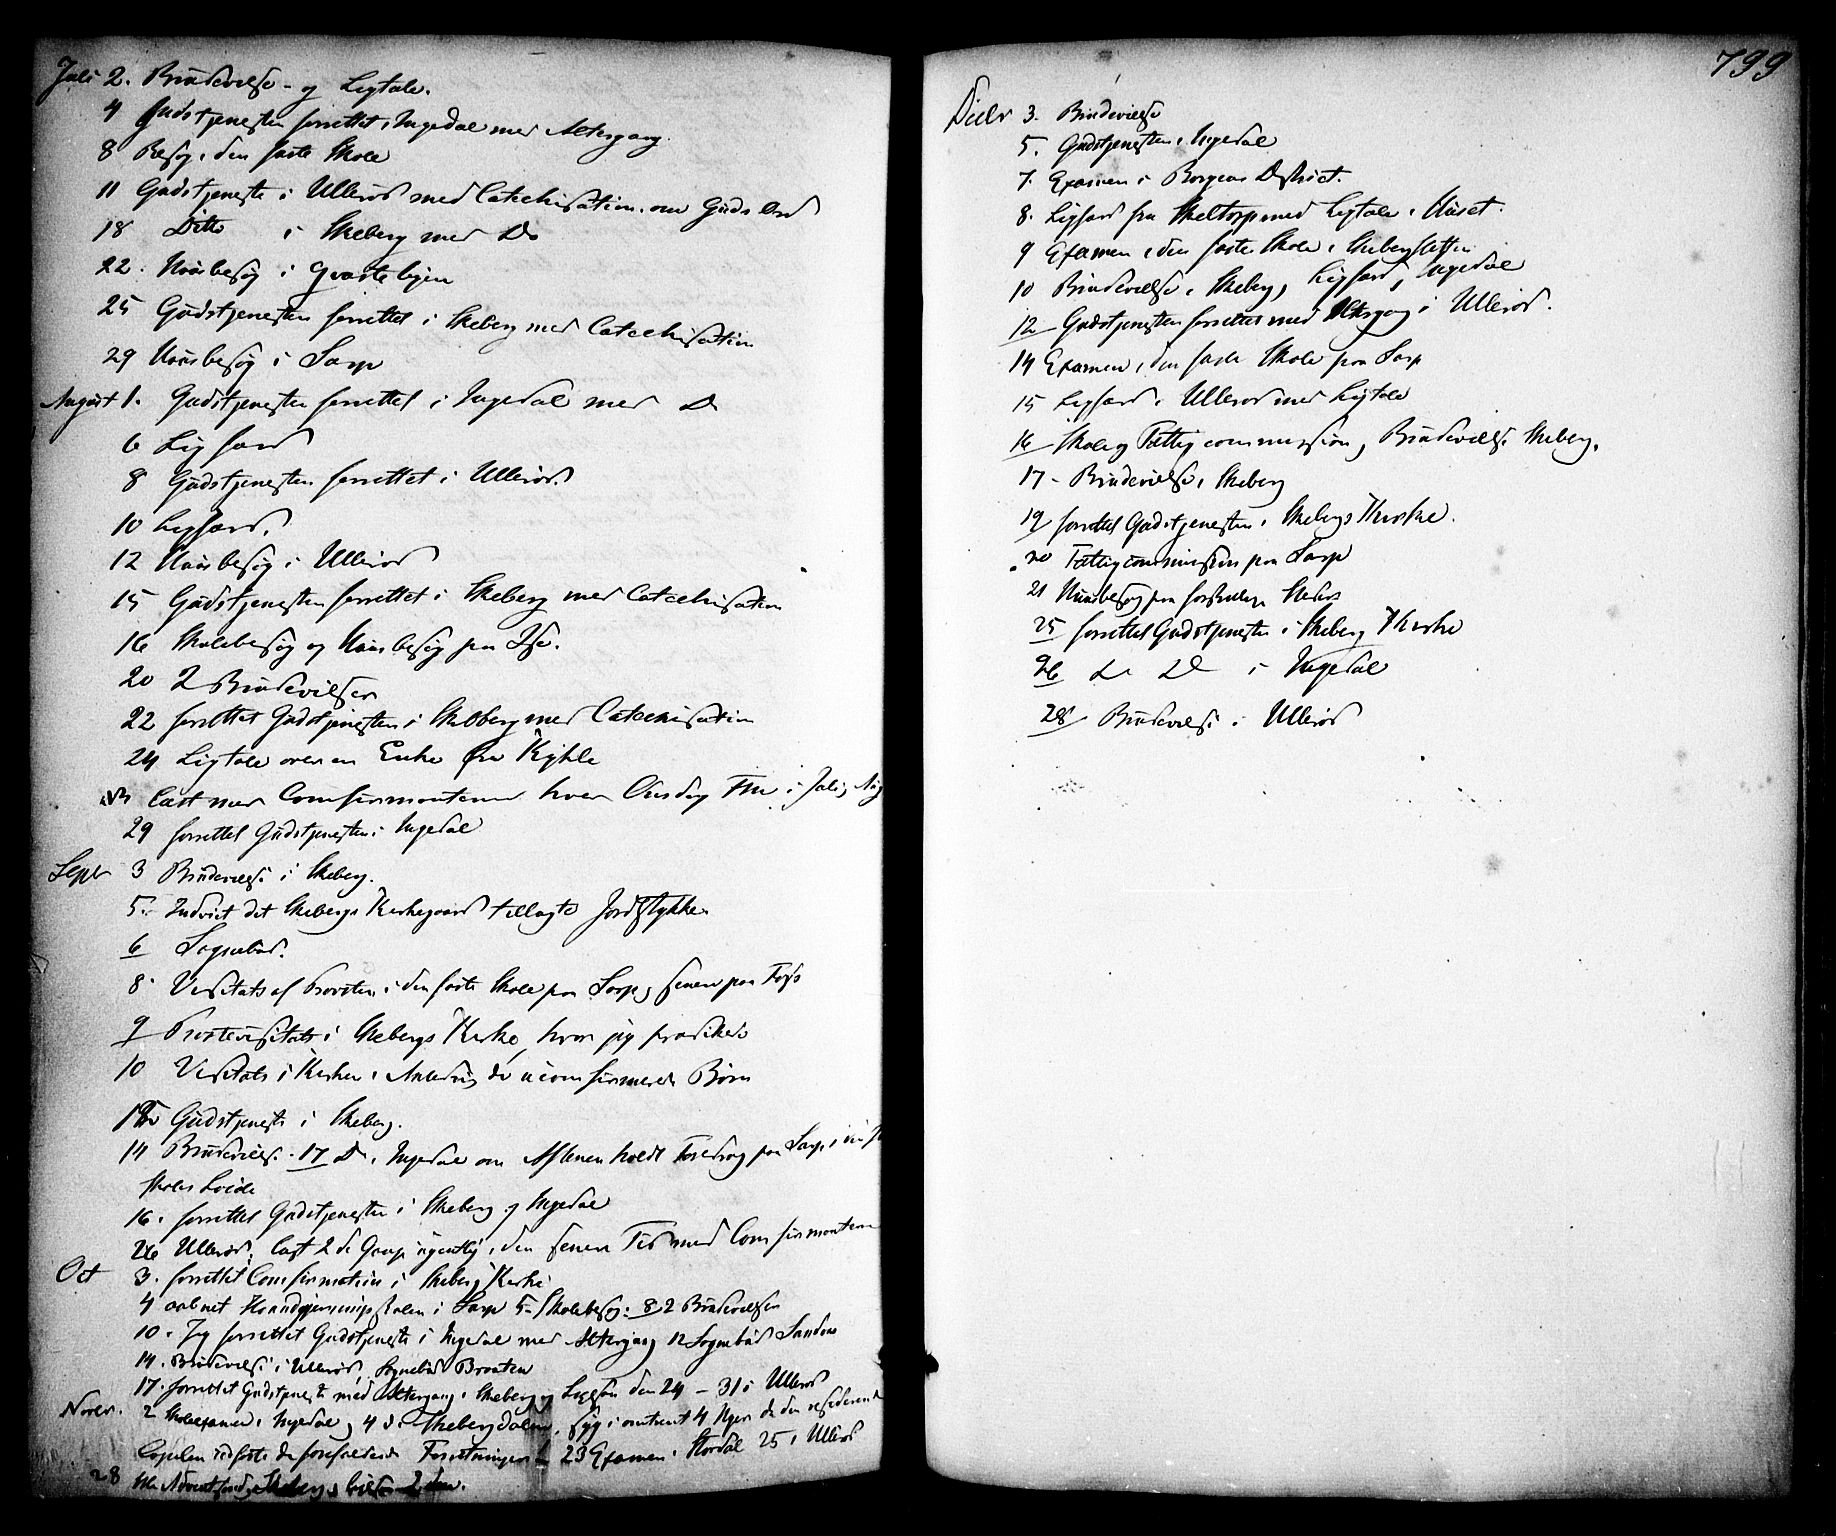 Juli 2. Brudevielse og Ligtale.
4 Gudstjenesten forrettet i Ingedal med Altergang.
8 Besøg i den faste Skole
11 Gudstjeneste i Ullerød med Catechisation om Guds Ord
18 Ditto i Skeberg med Do
22. Huusbesøg i
25 Gudstjenesten forrettet i Skeberg med Catechisation
29 Huusbesøg i Sarp
August 1. Gudstjenesten forrettet i Ingedal med Do
6 Ligfærd
8 Gudstjenesten forrettet i Ullerød.
10 Ligfærd.
12 Huusbesøg i Ullerød
15 Gudstjenesten forrettet i Skeberg med Catechisation
16 Skolebesøg og Huusbesøg paa Ise.
20 2 Brudevielser
22 forrettet Gudstjenesten i Skeberg med Catechisation
24 Ligtale over en Enke fra
læst med Confirmanterne hver Onsdag i Juli og Aug
29 forrettet Gudstjenesten i Ingedal
Septr 3 Brudevielse i Skeberg.
5. Indviet det Skebergs Kirkegaard tillagte Jordstykke.
6 Sognebud.
8. Visitats af Provsten i den faste Skole paa Sarp, senere paa
9 Provstevisitats i Skebergs Kirke, hvor jeg prædikede
10 Visitats i Kirken i Anledning de uconfirmerede Børn
Gudstjeneste i Skeberg.
14 Brudevielse. 17 Do i Ingedal om Aftenen holdt Foredrag paa Sarp i
Skoles Locale
16. forrettet Gudstjenesten i Skeberg og Ingedal
26 Ullerød, læst 2 de Gange ugentlig i den senere Tid med Confirmanterne
Oct 3. forrettet Confirmation i Skeberg Kirke
4 aabnet i Sarp 5. Skolebesøg: 8 2 Brudevielser
10. Jeg forrettet Gudstjeneste i Ingedal med Altergang 12 Sognebud
14. Brudevielse i Ullerød, Sognebud Braaten
17. forrettet Gudstjeneste med Altergang i Skeberg og den 24 – 31 i Ullerød
Novbr. 2 Skoleexamen i Ingedal, 4 d i Skebergdalen, syg i omtrent 4 Uger da den residerende
Capelan de forefaldende Forretninger 23 Examen i Stordal 25 i Ullerød
28 Skeberg
799
Decbr 3. Brudevielse
5. Gudstjenesten i Ingedal
7. Examen i Borgens District.
8. Ligfærd fra Skeltorp med Ligtale i Huset.
9 Examen i den faste Skole i Skebergsletten
10 Brudevielse i Skeberg, Ligfærd i Ingedal
12 Gudstjenesten forrettet med Altergang i Ullerød.
14 Examen i den faste Skole paa Sarp
15 Ligfærd i Ullerød med Ligtale
16 Skole og Fattigcommission, Brudevielse Skeberg.
17 – Brudevielse i Skeberg
19 forrettet Gudstjenesten i Skebergs Kirke.
20 Fattigcommission paa Sarp
21 Huusbesøg paa forskellige Steder
25 forrettet Gudstjenesten i Skeberg Kirke
26 do do i Ingedal
28 Brudevielse i Ullerød